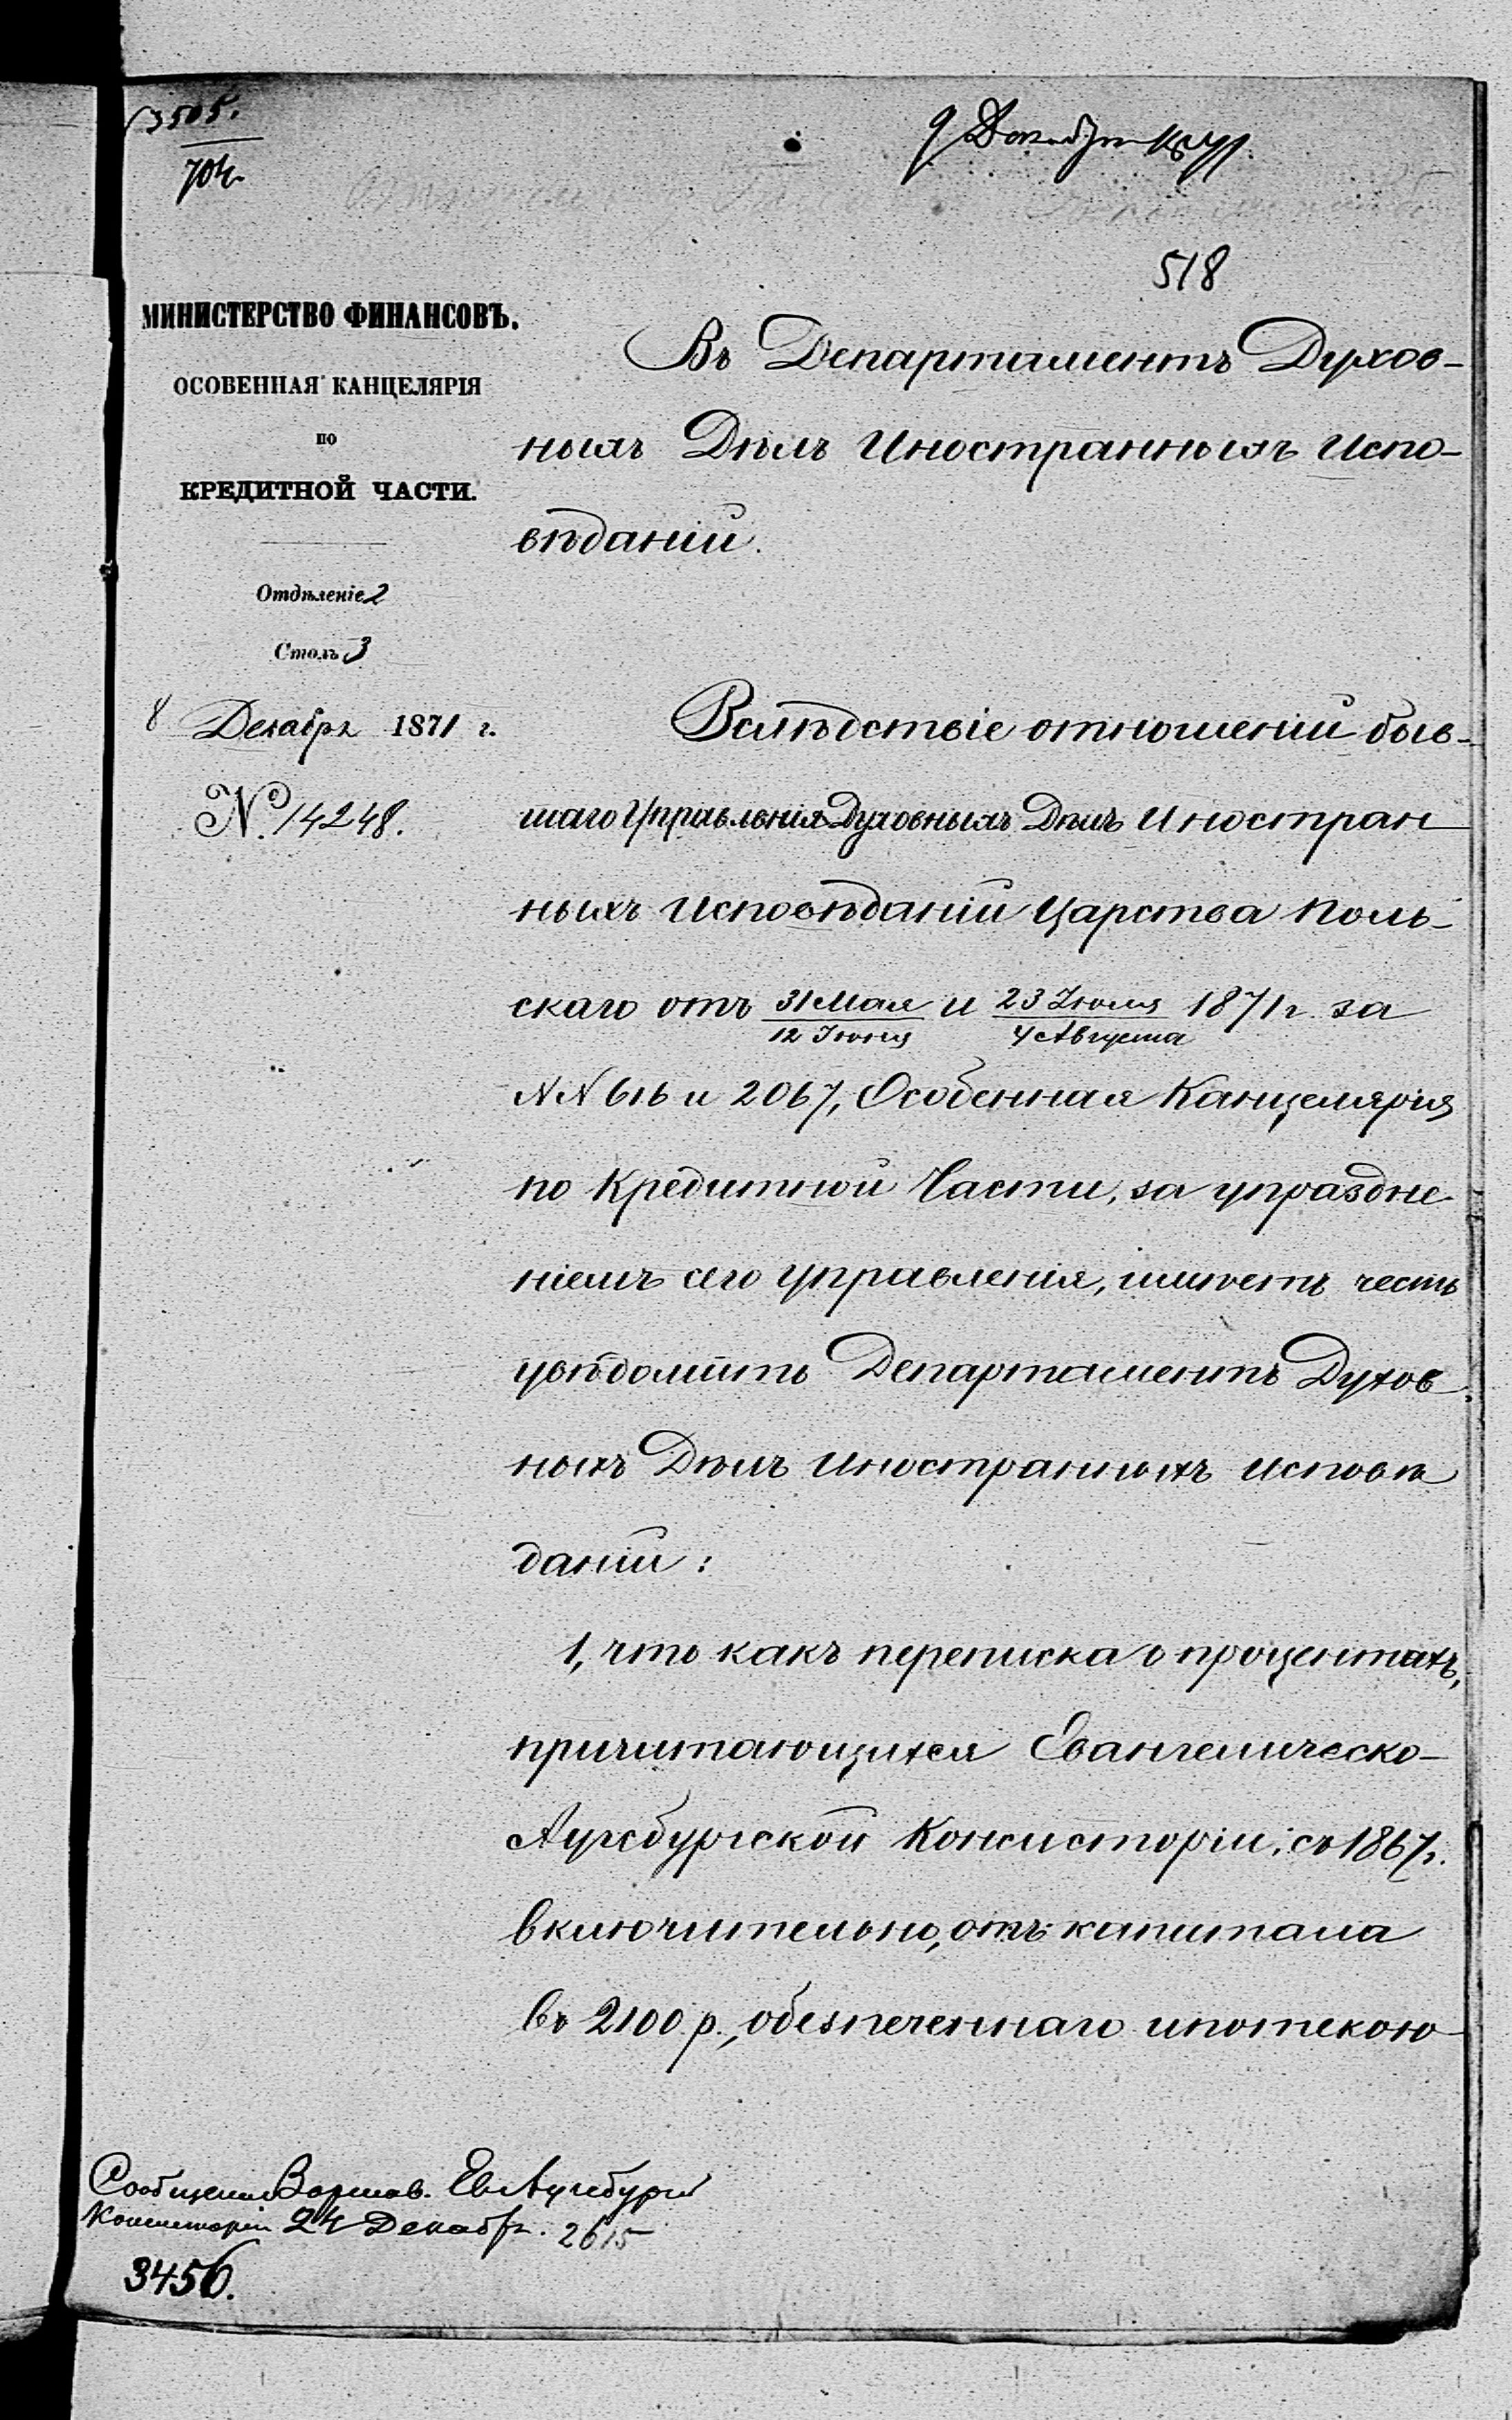 3505.
704
9 Декабря 1871
518
МИНИСТЕРСТВО ФИНАНСОВЪ.
ОСОБЕННАЯ КАНЦЕЛЯРІЯ
ПО
КРЕДИТНОЙ ЧАСТИ.
Отдѣленіе 2
Столъ 3
8 Декабря 1871 г.
№ 14248.
Въ Департаментъ Духов-
ныхъ Дѣлъ Иностранныхъ Испо-
вѣданій.
Вслѣдствіе отношеній быв-
шаго Управленія Духовныхъ Дѣлъ Иностран
ныхъ Исповѣданій Царства Поль-
скаго отъ 31 Мая / 12 Іюня и 23 Іюля / 4 Августа 1871 г. за
NN 616 и 2067, Особенная Канцелярія
по Кредитной Части, за упраздне-
ніемъ сего управленія, имѣетъ честь
увѣдомить Департаментъ Духов
ныхъ Дѣлъ Иностранныхъ Исповѣ
даній:
1, что какъ переписка о процентахъ,
причитающихся Евангелическо-
Аугсбургской Консисторіи, съ 1867 г.
включительно, отъ капитала
въ 2100 р., обезпеченнаго ипотекою
Сообщено Варшав. Ев. Аугсбург
Консисторіи 24 Декабр. 2615
3456.